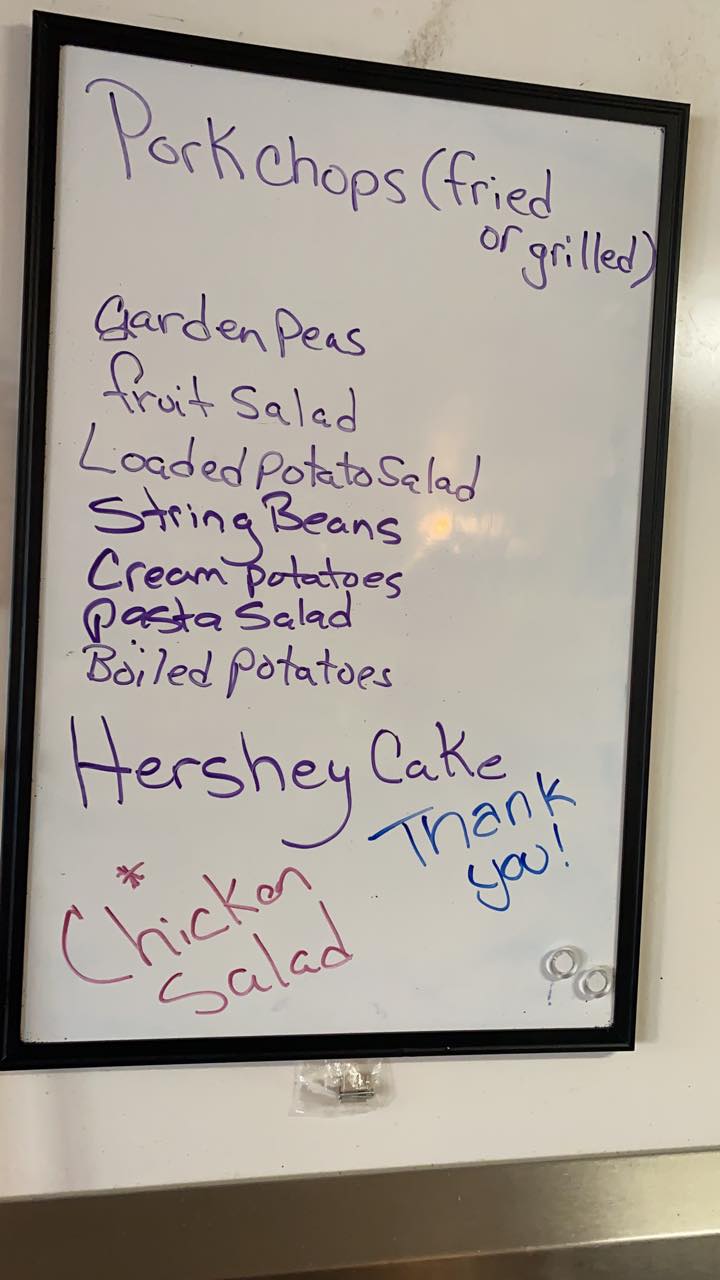 Pork chops (fried
or grilled)
Garden Peas
fruit Salad
Loaded Potato Salad
String Beans
Cream potatoes
Pasta Salad
Boiled Potatoes
Hershey Cake
Thank
you!
*
Chicken
Salad